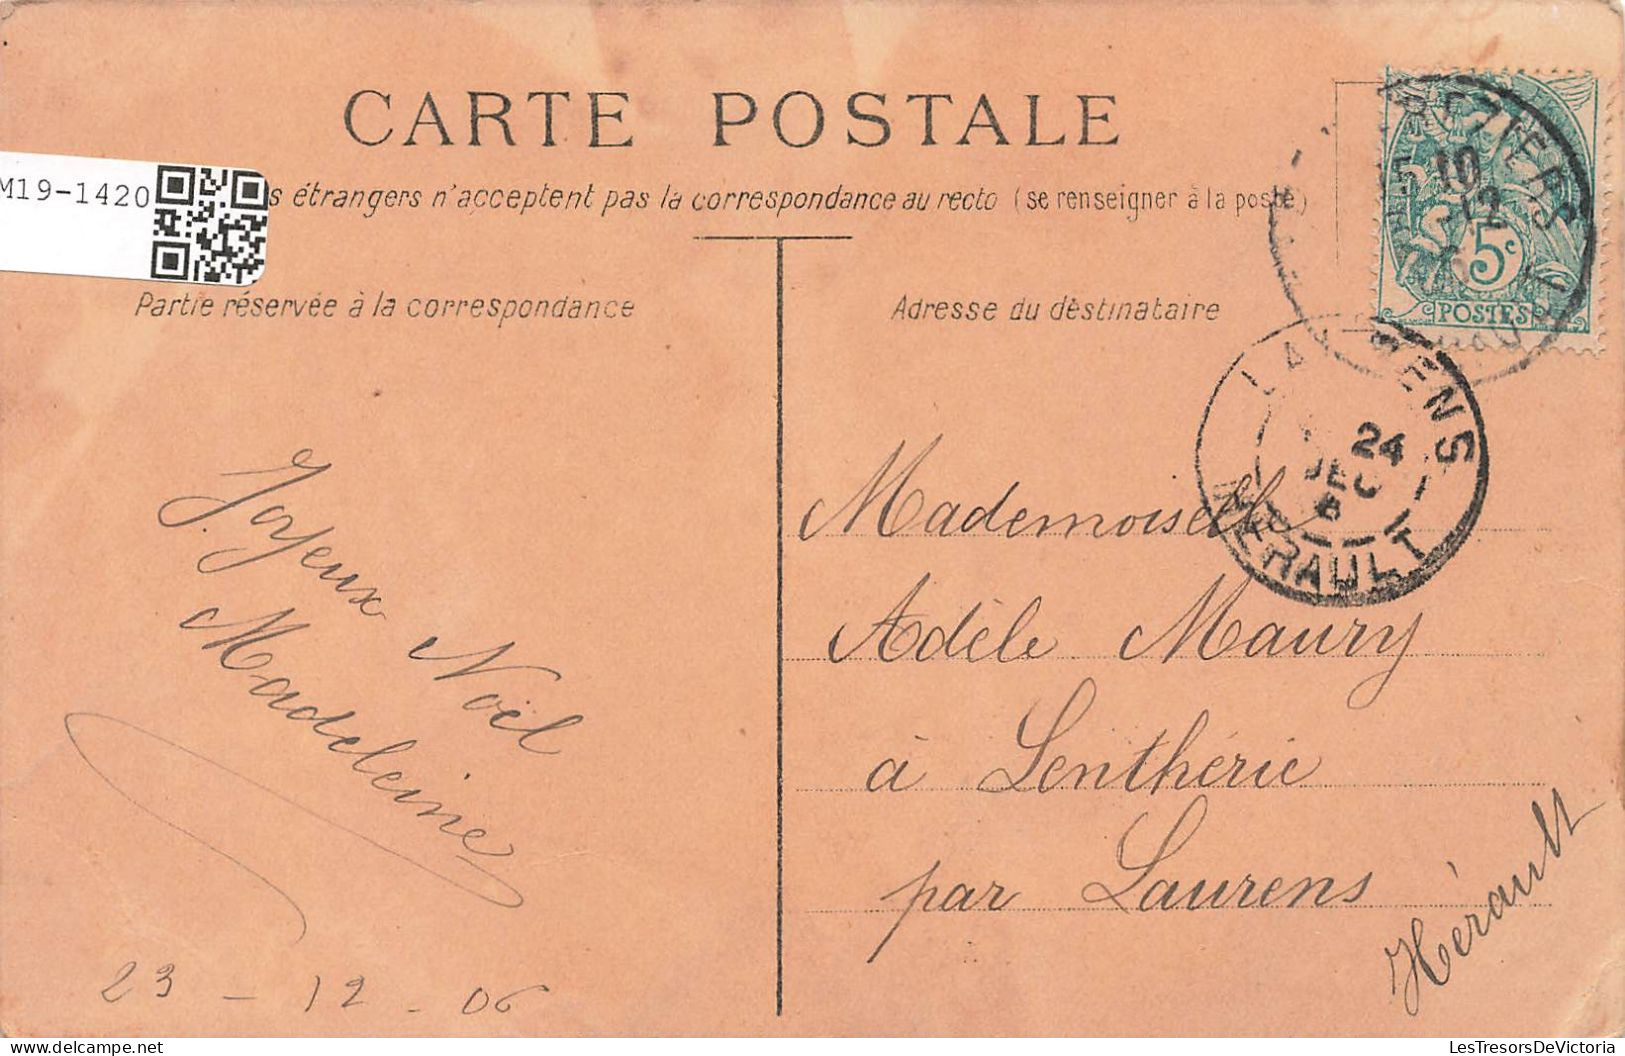 CARTE POSTALE
M19-1420
s étrangers n'acceptent pas la correspondance au recto (se renseigner à la poste)
Partie réservée à la correspondance
Adresse du destinataire
BEZIERS
15 10
-12
5c
POSTES
LAURENS
24
DEC
6
HERAULT
Joyeux Noël
Madeleine
23 - 12 - 06
Mademoiselle
Adèle Maury
à Lenthéric
par Laurens
Hérault
LesTresorsDeVictoria